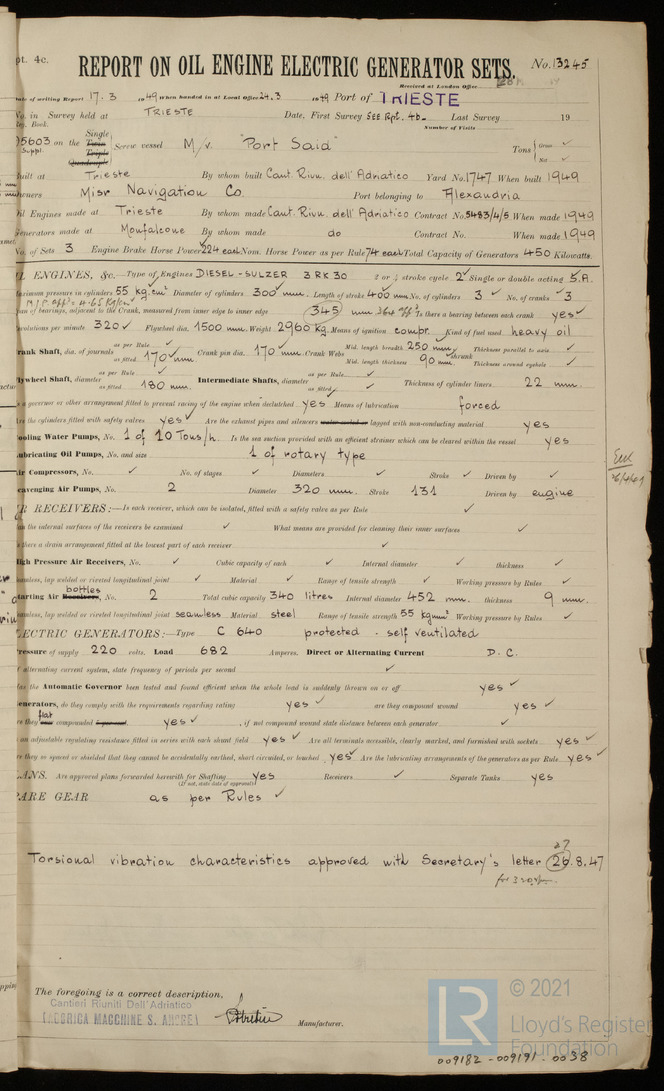 pt. 4c.
REPORT ON OIL ENGINE ELECTRIC GENERATOR SETS.
No. 13245
Received at London Office
Date of writing Report 17.3 1949 When handed in at Local Office 24.3 1949 Port of TRIESTE
No. in Survey held at TRIESTE Date, First Survey SEE Rpt. 4b. Last Survey 19
Reg. Book. Number of Visits
05603 Suppl. on the Single Twin Triple Quadruple Screw vessel M/v. "Port Said" Tons Gross ✓ Net ✓
Built at Trieste By whom built Cant. Riun. dell' Adriatico Yard No. 1747 When built 1949
Owners Misr Navigation Co. Port belonging to Alexandria
Oil Engines made at Trieste By whom made Cant. Riun. dell' Adriatico Contract No. 5483/4/5 When made 1949
Generators made at Monfalcone By whom made do Contract No. When made 1949
No. of Sets 3 Engine Brake Horse Power 224 each Nom. Horse Power as per Rule 74 each Total Capacity of Generators 450 Kilowatts.
IL ENGINES, &c. Type of Engines DIESEL-SULZER 3 RK 30 2 or 4 stroke cycle 2 Single or double acting S.A.
Maximum pressure in cylinders 55 kg.cm² Diameter of cylinders 300 mm. Length of stroke 400 mm. No. of cylinders 3 No. of cranks 3
M.I.P. appd = 4.65 Kg/cm²
Span of bearings, adjacent to the Crank, measured from inner edge to inner edge 345 mm Is there a bearing between each crank yes ✓
Revolutions per minute 320 ✓ Flywheel dia. 1500 mm. Weight 2960 kg Means of ignition compr. Kind of fuel used heavy oil
Crank Shaft, dia. of journals as per Rule as fitted 170 mm Crank pin dia. 170 mm. Crank Webs Mid. length breadth 250 mm Thickness parallel to axis ✓
Mid. length thickness 90 mm. shrunk Thickness around eyehole ✓
Flywheel Shaft, diameter as per Rule as fitted 180 mm. Intermediate Shafts, diameter as per Rule ✓ as fitted ✓ Thickness of cylinder liners 22 mm.
Is a governor or other arrangement fitted to prevent racing of the engine when declutched yes Means of lubrication forced
Are the cylinders fitted with safety valves yes ✓ Are the exhaust pipes and silencers water cooled or lagged with non-conducting material yes
Cooling Water Pumps, No. 1 of 10 Tons/h. Is the sea suction provided with an efficient strainer which can be cleared within the vessel yes
Lubricating Oil Pumps, No. and size 1 of rotary type
Air Compressors, No. ✓ No. of stages ✓ Diameters ✓ Stroke ✓ Driven by ✓
Scavenging Air Pumps, No. 2 Diameter 320 mm. Stroke 131 Driven by engine
R RECEIVERS:—Is each receiver, which can be isolated, fitted with a safety valve as per Rule ✓
Can the internal surfaces of the receivers be examined ✓ What means are provided for cleaning their inner surfaces ✓
Is there a drain arrangement fitted at the lowest part of each receiver ✓
High Pressure Air Receivers, No. ✓ Cubic capacity of each ✓ Internal diameter ✓ thickness ✓
Seamless, lap welded or riveted longitudinal joint ✓ Material ✓ Range of tensile strength ✓ Working pressure by Rules ✓
Starting Air Receivers, bottles No. 2 Total cubic capacity 340 litres Internal diameter 452 mm. thickness 9 mm.
Seamless, lap welded or riveted longitudinal joint seamless Material steel Range of tensile strength 55 kg mm² Working pressure by Rules ✓
ECTRIC GENERATORS:— Type C 640 protected - self ventilated
Pressure of supply 220 volts. Load 682 Amperes. Direct or Alternating Current D.C.
If alternating current system, state frequency of periods per second ✓
Has the Automatic Governor been tested and found efficient when the whole load is suddenly thrown on or off yes ✓
Generators, do they comply with the requirements regarding rating yes ✓ are they compound wound yes ✓
are they flat compounded yes ✓, if not compound wound state distance between each generator ✓
Is an adjustable regulating resistance fitted in series with each shunt field yes ✓ Are all terminals accessible, clearly marked, and furnished with sockets yes ✓
Are they so spaced or shielded that they cannot be accidentally earthed, short circuited, or touched yes ✓ Are the lubricating arrangements of the generators as per Rule yes ✓
LANS. Are approved plans forwarded herewith for Shafting yes Receivers ✓ Separate Tanks yes
(If not, state date of approval)
PARE GEAR as per Rules ✓
27
Torsional vibration characteristics approved with Secretary's letter 26.8.47
for 320 r/m.
The foregoing is a correct description,
Cantieri Riuniti Dell'Adriatico
FABBRICA MACCHINE S. ANDREA
Manufacturer.
LR
© 2021
Lloyd's Register
Foundation
009182-009191-0038